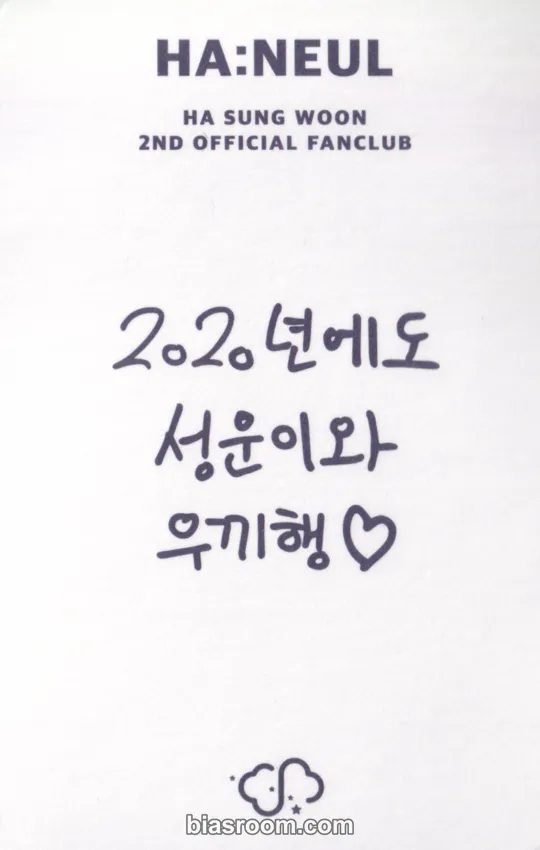 HA:NEUL
HA SUNG WOON
2ND OFFICIAL FANCLUB
2020년에도
성운이와
우끼행♡
biasroom.com